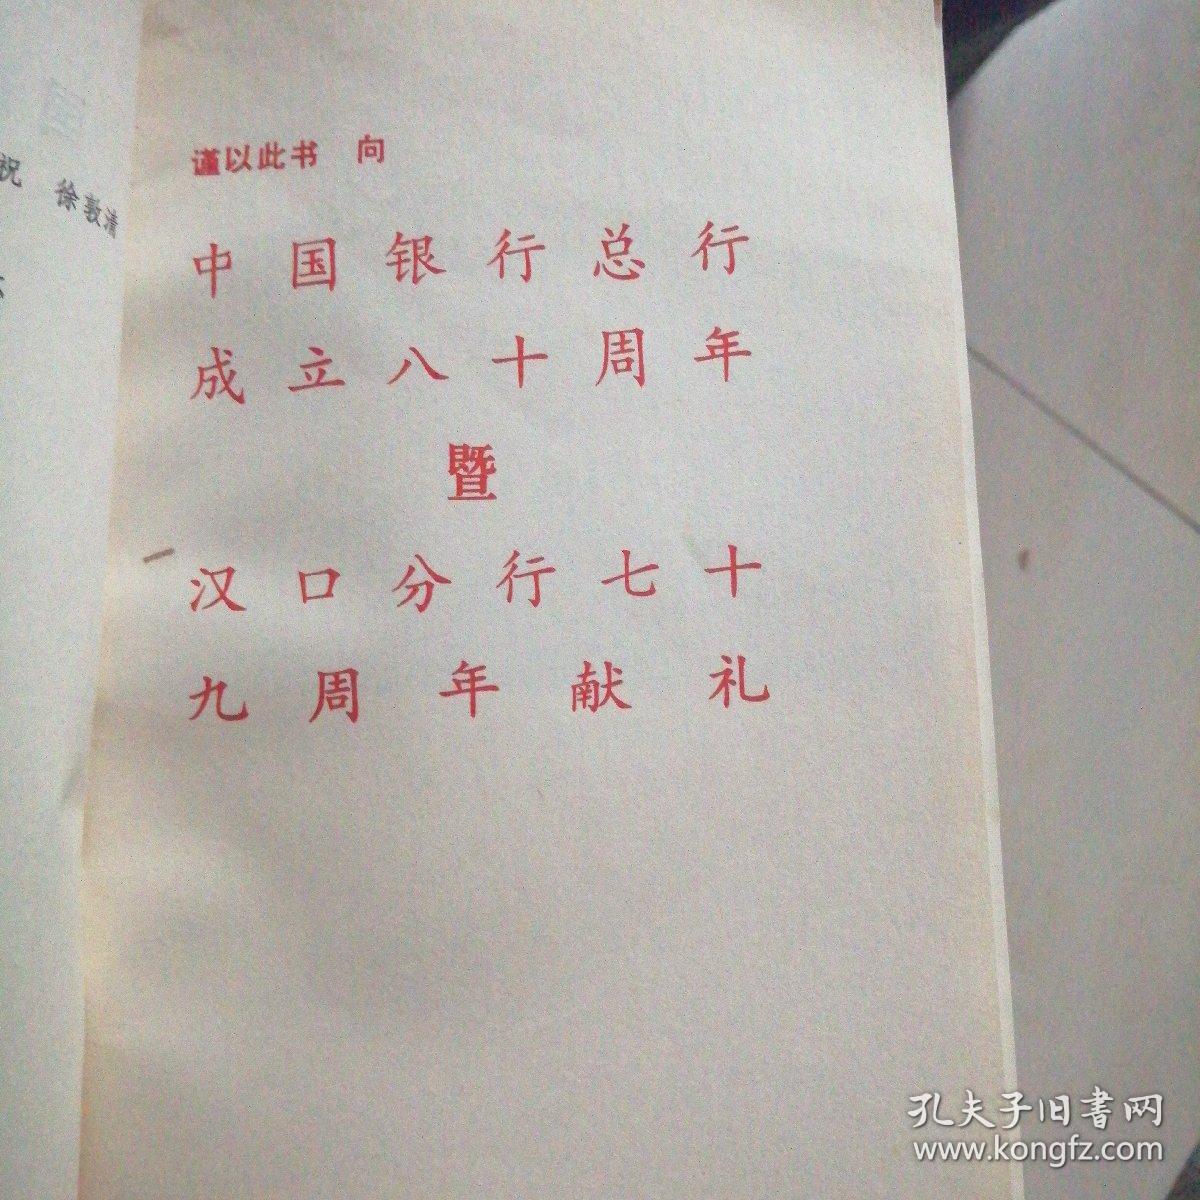 祝 徐敦清
谨以此书 向
中国银行总行
成立八十周年
暨
汉口分行七十
九周年献礼
孔夫子旧书网
www.kongfz.com